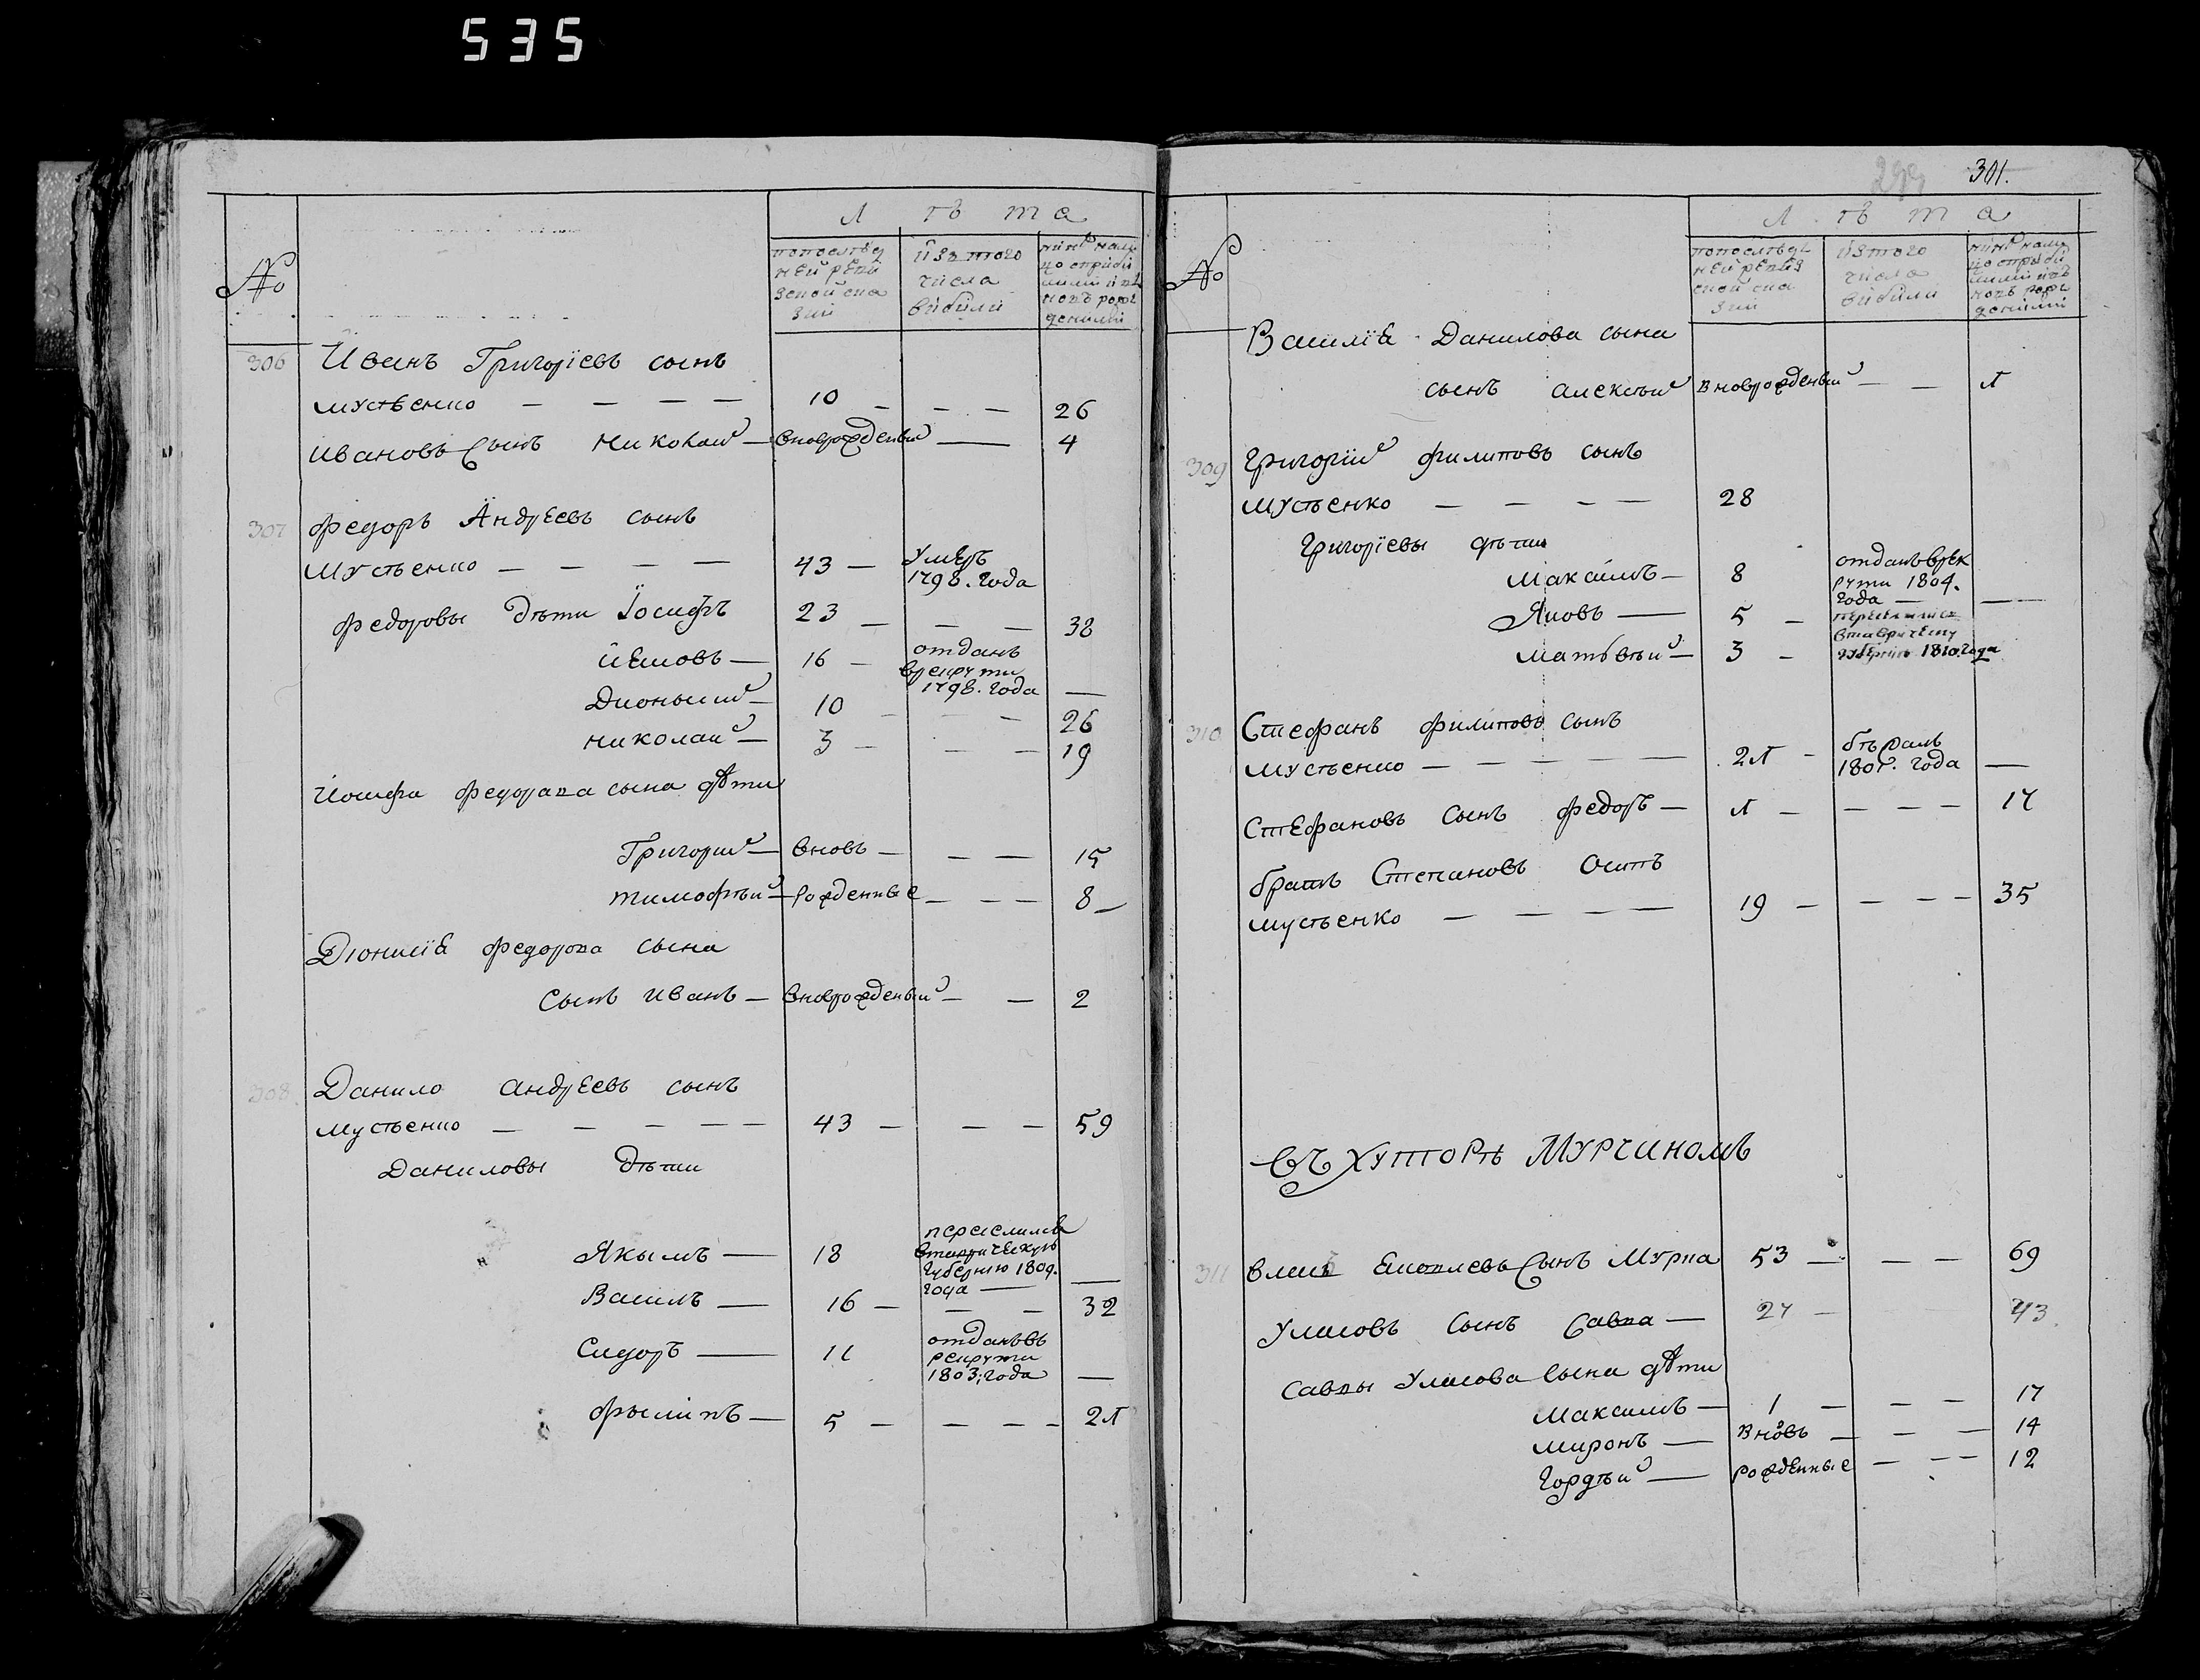 535
Лѣта
№
попослѣд
ней ревизской ска
зки
изъ того
числа
выбыли
306 Иванъ Григорїевъ сынъ
Мустѣенко — — — — 10 — — — 26
Ивановъ Сынъ Николай — вноврожденый — 4
307 Федоръ Андреевъ сынъ
Мустѣенко — — — — 43 — Умеръ
1798. года
Федоровы Дѣти Іосифъ 23 — — — 32
Якововъ — 16 — отданъ
врекруты
1798. года —
Дионысий — 10 — — 26
Николай — 3 — — — 19
Йосифа Федорова сына дѣти
Григорий — вновь — — — 15
Тимофѣй — рожденные — — — 8 —
Дїонисїя Федорова сына
Сынъ Иванъ — вноврожденый — — 2
308 Данило Андреевъ сынъ
Мустѣенко — — — — — 43 — — — 59
Даниловы Дѣти
Якымъ — 18 переселился
втаврическую
губернїю 1809.
года — —
Василь — 16 — — — 32
Сидоръ — 11 отданъ въ
рекруты
1803; года —
Фылипъ — 5 — — — — 21
301.
Лѣта
№
попослѣд
ней ревиз
ской ска
зки
изъ того
числа
выбыли
Василїя Данилова сына
сынъ Алексѣй вноврожденый — — 1
309 Григорїй Филиповъ сынъ
Мустѣенко — — — — 28
Григорїевы дѣти
Максимъ — 8 отданъ врек
руты 1804.
года — —
Яковъ — 5 — переселился
втаврическу
губернїю 1810. года
Матвѣй — 3 —
310 Стефанъ Филиповъ сынъ
Мустѣенко — — — — — 21 — бѣжалъ
1807. года —
Стефановъ Сынъ Федоръ — 1 — — — — 17
братъ Степановъ Осипъ
Мустѣенко — — — — 19 — — — — 35
въ хуторѣ Мурчиномъ
311 Власъ Яковлевъ Сынъ Мурка 53 — — — 69
Уласовъ Сынъ Савка — 27 — 43.
Савкы Уласова сына дѣти
Максимъ — 1 — — — 17
Миронъ — вновь — — — 14
Гордѣй — рожденные — — — 12